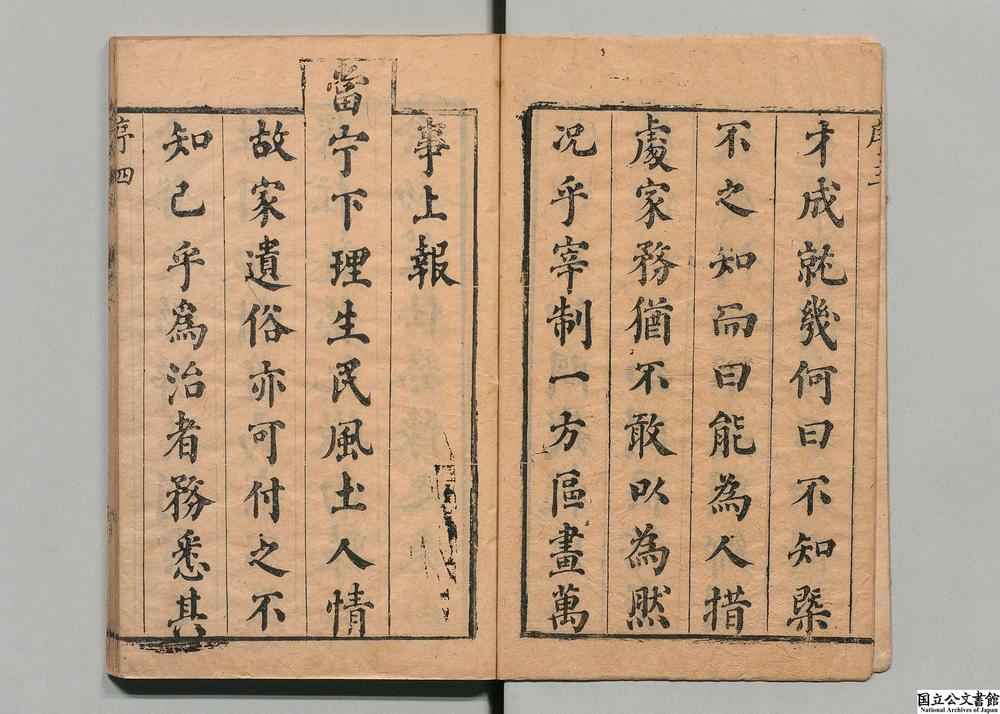 才成就幾何曰不知槩
不之知而曰能為人措
處家務猶不敢以為然
况乎宰制一方區畫萬
事上報
當宁下理生民風土人情
故家遺俗亦可付之不
知已乎爲治者務悉其
序四
国立公文書館
National Archives of Japan